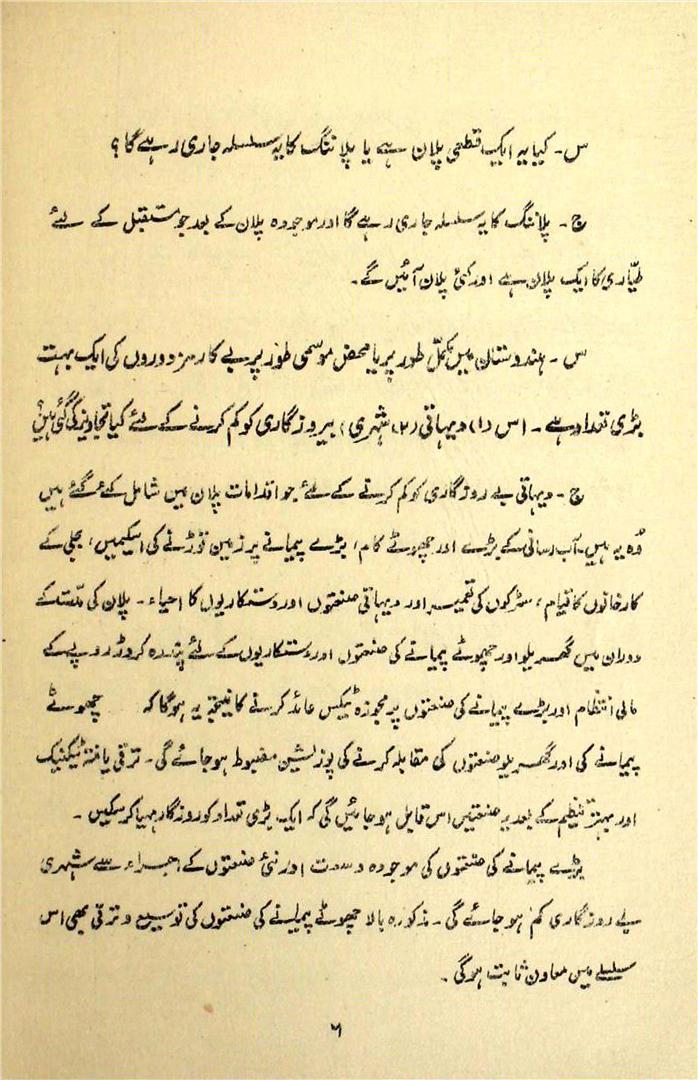 س۔ کیا یہ ایک قطعی پلان ہے یا پلاننگ کا یہ سلسلہ جاری رہے گا؟
ج۔ پلاننگ کا یہ سلسلہ جاری رہے گا اور موجودہ پلان کے بعد جو مستقبل کے لئے
طیّاری کا ایک پلان ہے اور کئی پلان آئیں گے۔
س۔ ہندوستان میں مکمل طور پر یا محض موسمی طور پر بے کار مزدوروں کی ایک بہت
بڑی تعداد ہے۔ اس (۱) دیہاتی (۲) شہری، بیروزگاری کو کم کرنے کے لئے کیا تجاویز کی گئی ہیں؟
ج۔ دیہاتی بے روزگاری کو کم کرنے کے لئے جو اقدامات پلان میں شامل کئے گئے ہیں
وُہ یہ ہیں۔ آب رسانی کے بڑے اور چھوٹے کام، بڑے پیمانے پر زمین توڑنے کی اسکیمیں، بجلی کے
کارخانوں کا قیام، سڑکوں کی تعمیر اور دیہاتی صنعتوں اور دستکاریوں کا احیاء۔ پلان کی مدّت کے
دوران میں گھریلو اور چھوٹے پیمانے کی صنعتوں اور دستکاریوں کے لئے پندرہ کروڑ روپے کے
مالی انتظام اور بڑے پیمانے کی صنعتوں پر مجوزہ ٹیکس عائد کرنے کا نتیجہ یہ ہوگا کہ چھوٹے
پیمانے کی اور گھریلو صنعتوں کی مقابلہ کرنے کی پوزیشن مضبوط ہو جائے گی۔ ترقی یافتہ ٹیکنیک
اور بہتر تنظیم کے بعد یہ صنعتیں اس قابل ہو جائیں گی کہ ایک بڑی تعداد کو روزگار مہیا کر سکیں۔
بڑے پیمانے کی صنعتوں کی موجودہ وسعت اور نئی صنعتوں کے اجراء سے شہری
بے روزگاری کم ہو جائے گی۔ مذکورہ بالا چھوٹے پیمانے کی صنعتوں کی توسیع و ترقی بھی اس
سلسلے میں معاون ثابت ہوگی۔
۶